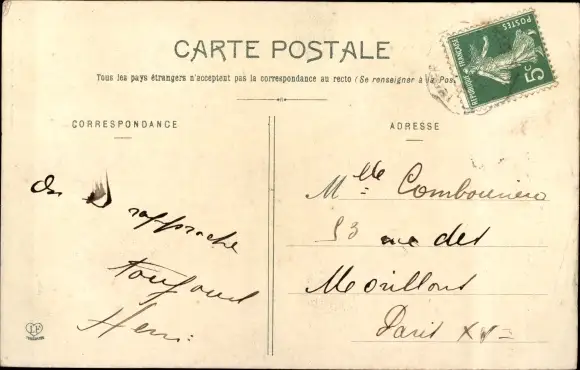 CARTE POSTALE
Tous les pays étrangers n'acceptent pas la correspondance au recto (Se renseigner à la Pos
CORRESPONDANCE
ADRESSE
POSTES
5c
REPUBLIQUE FRANÇAISE
On se rapproche
Toujours
Henri
Mlle
53 rue des
Morillons
Paris XVe